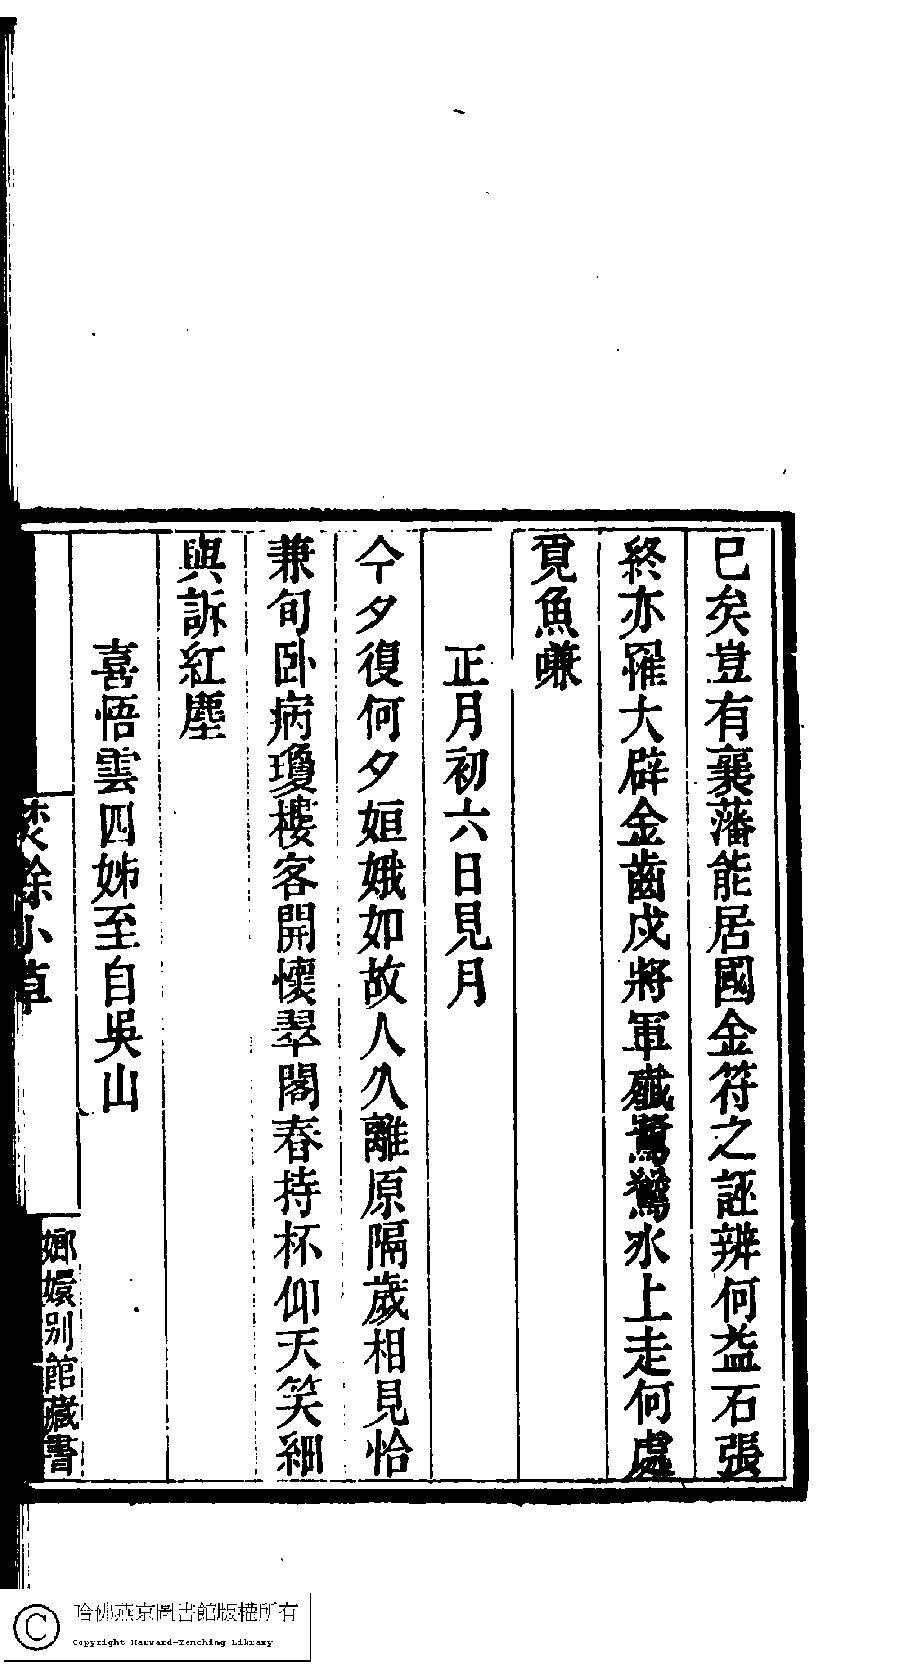 已矣豈有襄藩能居國金符之誣辨何益石張
終亦罹大辟金齒戍將軍殱鷺鷥水上走何處
覓魚嗛
正月初六日見月
今夕復何夕姮娥如故人久離原隔歲相見恰
兼旬卧病瓊樓客開懷翠閣春持杯仰天笑細
與訴紅塵
喜悟雲四姊至自吳山
焚餘小草
嫏嬛別館藏書
哈佛燕京圖書館版權所有
Copyright Harvard-Yenching Library